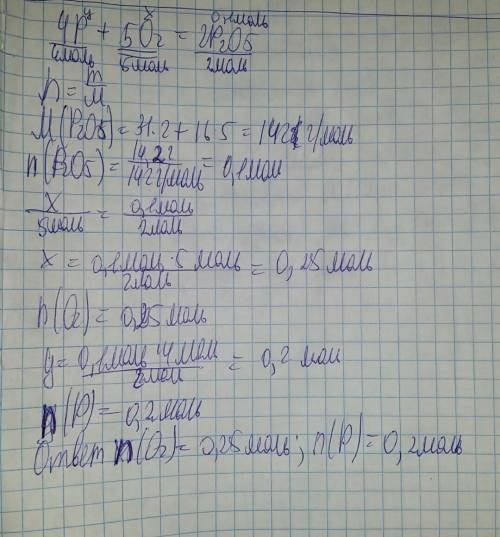 y x 0,1моль
4P + 5O₂ = 2P₂O₅
4моль 5моль 2моль
n = m/M
M(P₂O₅) = 31·2 + 16·5 = 142 г/моль
n(P₂O₅) = 14,2г / 142г/моль = 0,1моль
x / 5моль = 0,1моль / 2моль
x = 0,1моль · 5моль / 2моль = 0,25моль
n(O₂) = 0,25моль
y = 0,1моль · 4моль / 2моль = 0,2 моль
n(P) = 0,2моль
Ответ n(O₂) = 0,25моль; n(P) = 0,2моль